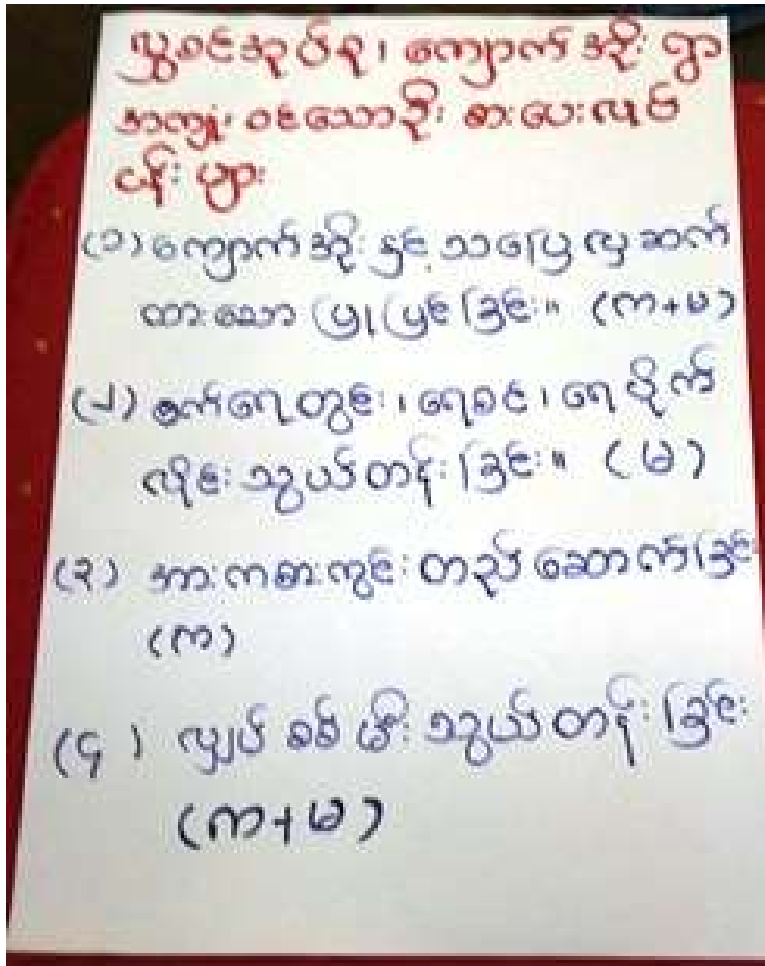 လှူဝင်အုပ်စု၊ ကျောက်အိုး ရွာ
အကျုံးဝင်သောဦးစားပေးလုပ်
ငန်းများ
(၁) ကျောက်အိုးနှင့် သပြေလှ ဆက်
ထားသော ပြုပြင်ခြင်း။ (က+မ)
(၂) စက်ရေတွင်း၊ ရေစင်၊ ရေပိုက်
လိုင်းသွယ်တန်းခြင်း။ (မ)
(၃) အားကစားကွင်းတည်ဆောက်ခြင်း
(က)
(၄) လျှပ်စစ်မီးသွယ်တန်းခြင်း
(က+မ)